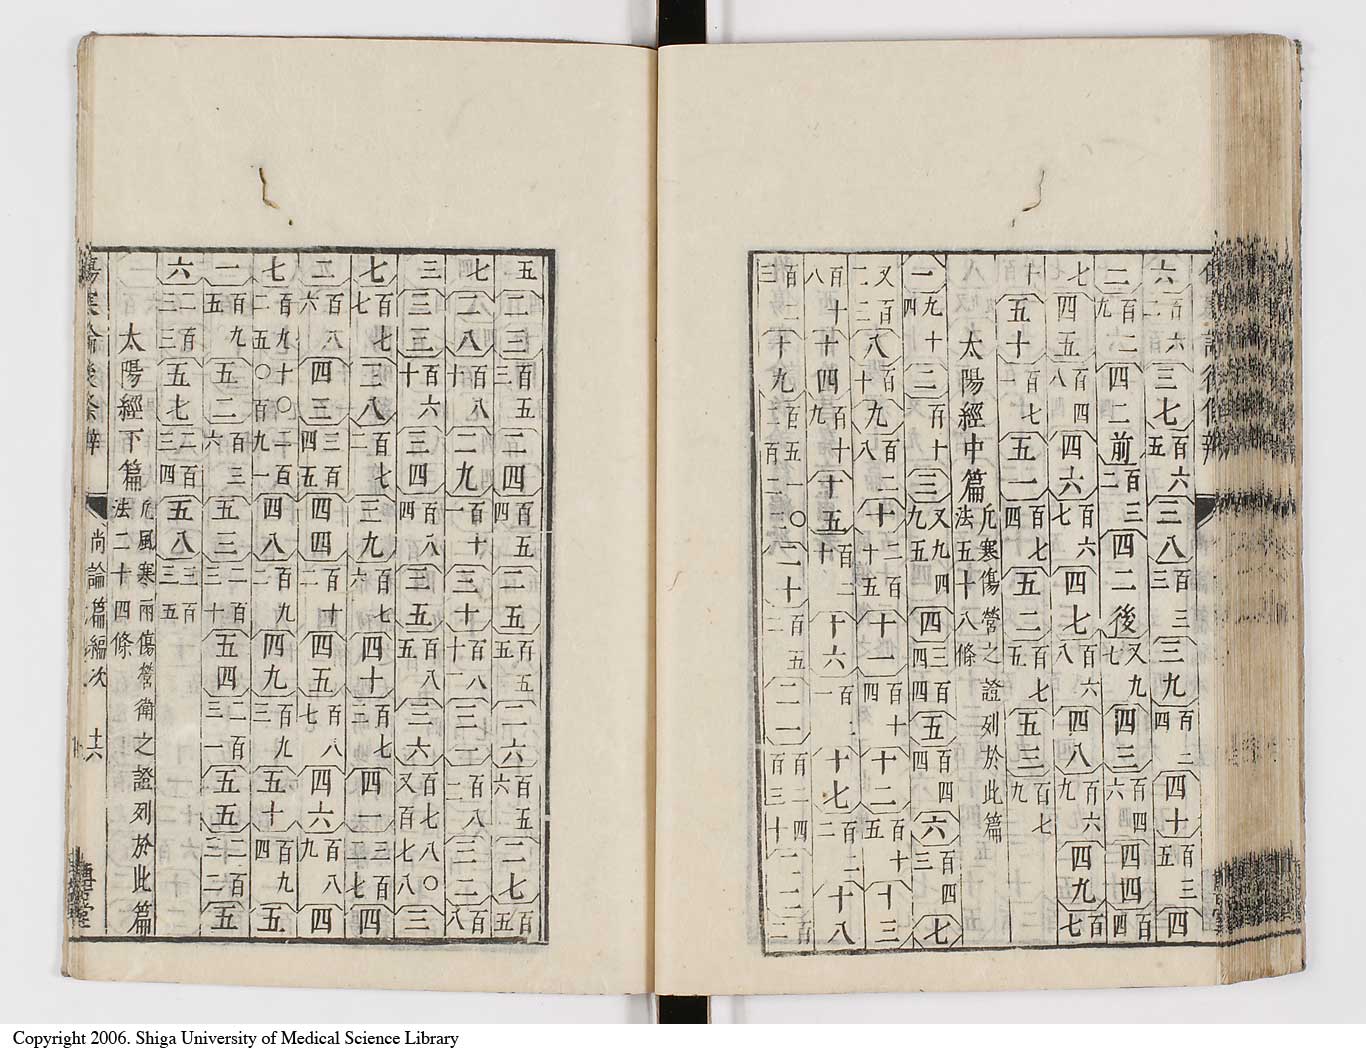 六 百六二 三七 百六五 三八 百三三 三九 百二四 四十 百三五 四
一 百二九 四二前 百三二 四二後 又九七 四三 百四六 四四 百四
七 四五 百四八 四六 百六七 四七 百六八 四八 百六九 四九 百七
十 五十 百七一 五一 百七四 五二 百七五 五三 百七九
太陽經中篇 凡寒傷營之證列於此篇
法五十八條
一 九十四 二 百十 三 又九四九五 四 三百四四 五 百四四 六 百四三 七
又百一二 八 百十 九 百二八 十 二百十五 十一 百十四 十二 百十五 十三
百十八 十四 百十九 十五 百二十 十六 百二一 十七 百二二 十八
百二三 十九 百五一〇百二一 二十 百五二 二一 百二四百三十 二二 百三
五 二三 百五三 二四 百五四 二五 百五五 二六 百五六 二七 百五
七 二八 百八十 二九 百十一 三十 百八十一 三一 百八二 三二 百八
三 三三 百六十 三四 百八四 三五 百八五 三六 百七八〇又百七八 三
七 百七七 三八 百七二 三九 百七六 四十 百七三 四一 三百二七 四
二 百八六 四三 三百四五 四四 百十二 四五 百八七 四六 百八九 四
七 百九十〇二百二五〇百九一 四八 百九二 四九 百九三 五十 百九四 五
一 百九五 五二 百三六 五三 一百三十 五四 二百三一 五五 二百三二 五
六 二百三三 五七 二百三四 五八 三百三五
太陽經下篇 凡風寒兩傷營衛之證列於此篇
法二十四條
傷寒論後條辨 尚論篇編次 十六
Copyright 2006. Shiga University of Medical Science Library